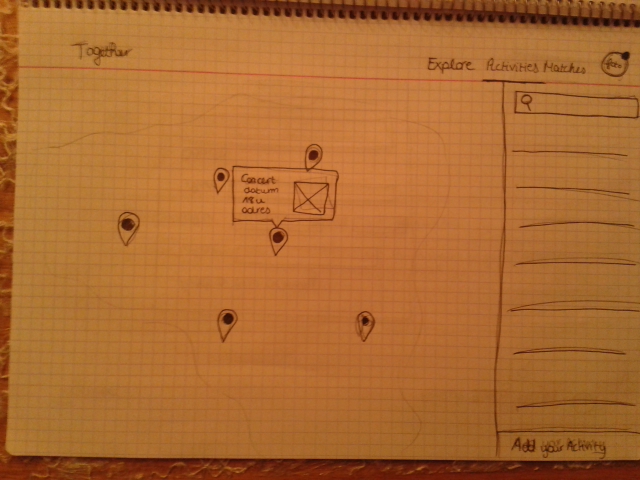 Together
Explore Activities Matches
Concert
datum
adres
Add your Activity